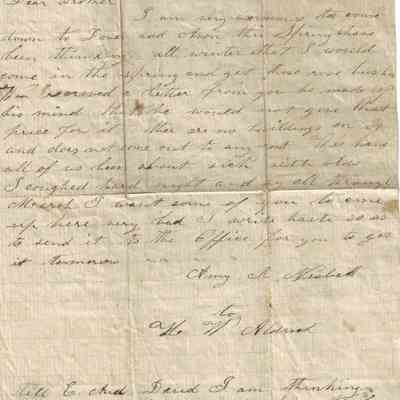 Dear Brother
I am very anxious to come
down to and then this Spring have
been thinking all winter that I would
come in the spring and get those rose bushes
Wm received a letter from you he made up
his mind that he would not give that
price for it ther are no buildings on it
and does not come out to any We have
all of us been about sick with colds
I coughed hard night and day all through
March I want some of you to come
up here very bad I write haste so as
to send it to the Office for you to get
it tomorow
Amy A Nisbett
to
H W Aldrich
tell E and David I am thinking